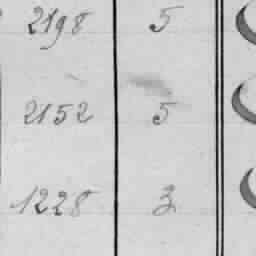 2198 5
2152 5
1228 3